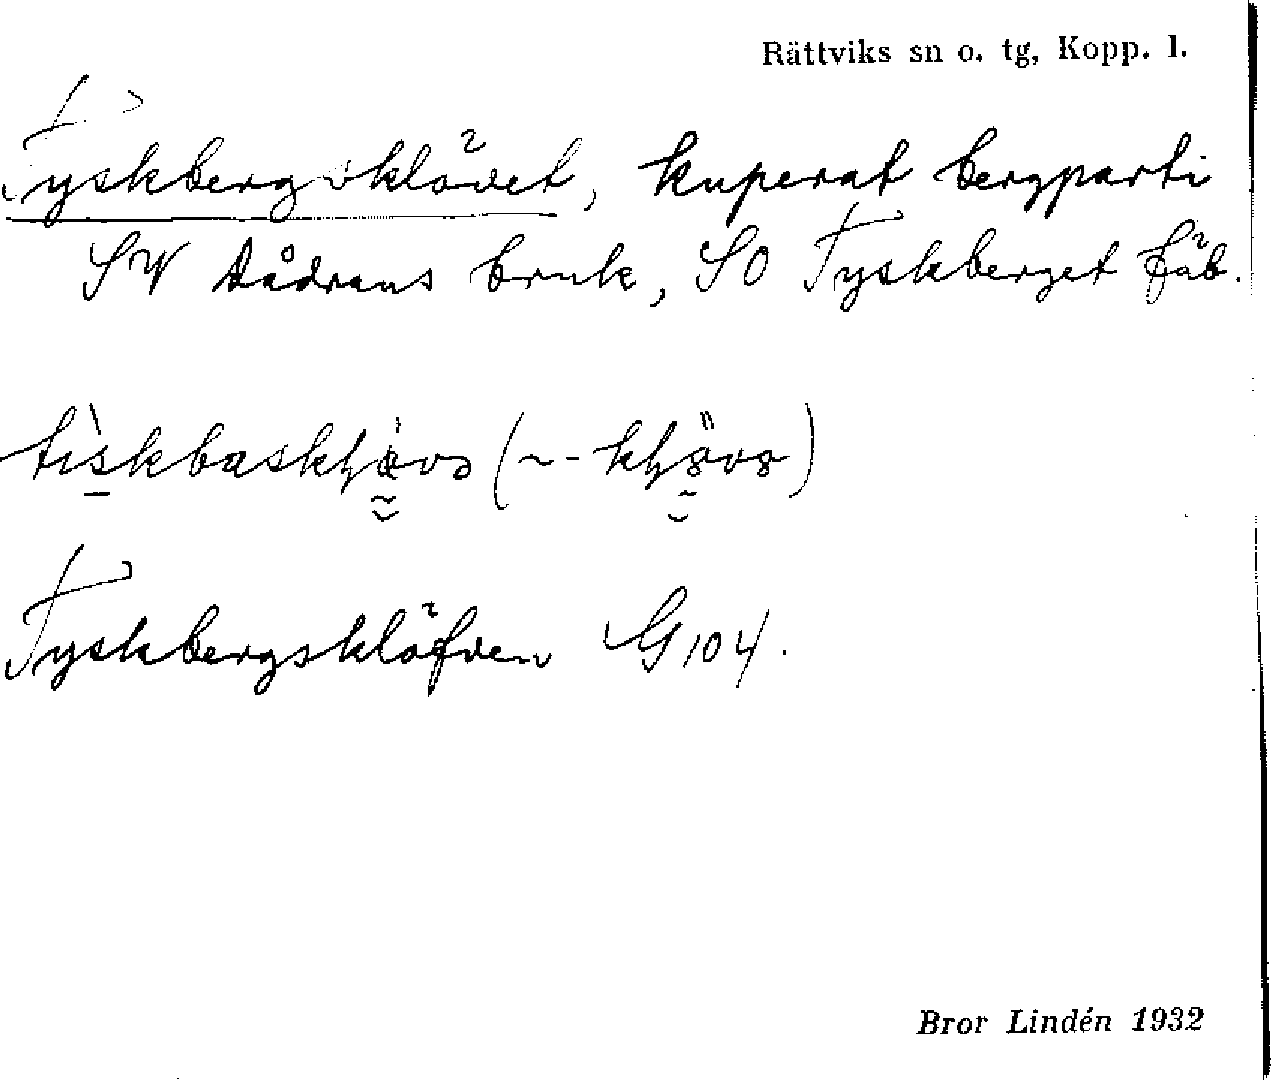 Rättviks sn o. tg, Kopp. l.
Tyskbergsklövet, kuperat bergparti
SV Dådrans bruk, SO Tyskberget fäb.
Tyskbergsklöfven G 104.
Bror Lindén 1932